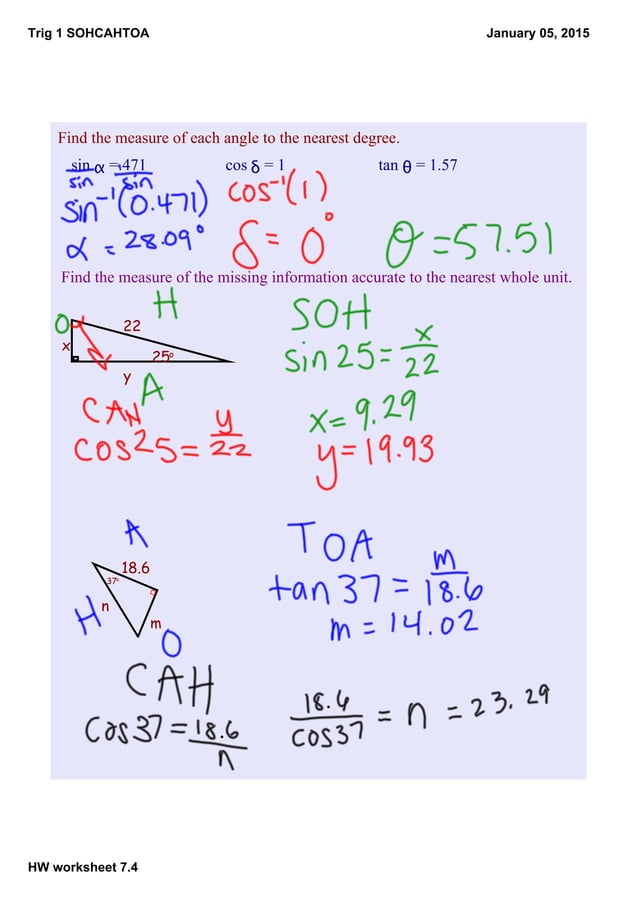 Trig 1 SOHCAHTOA January 05, 2015
Find the measure of each angle to the nearest degree.
sin α = .471 cos δ = 1 tan θ = 1.57
sin sin
sin⁻¹(0.471) cos⁻¹(1)
α = 28.09° δ = 0° θ = 57.51
Find the measure of the missing information accurate to the nearest whole unit.
H
O 22 SOH
x 25° sin 25 = x/22
y A
CAH x = 9.29
cos 25 = y/22 y = 19.93
A TOA
18.6
37° tan 37 = m/18.6
H n m m = 14.02
O
CAH
cos 37 = 18.6/n 18.6/cos 37 = n = 23.29
HW worksheet 7.4